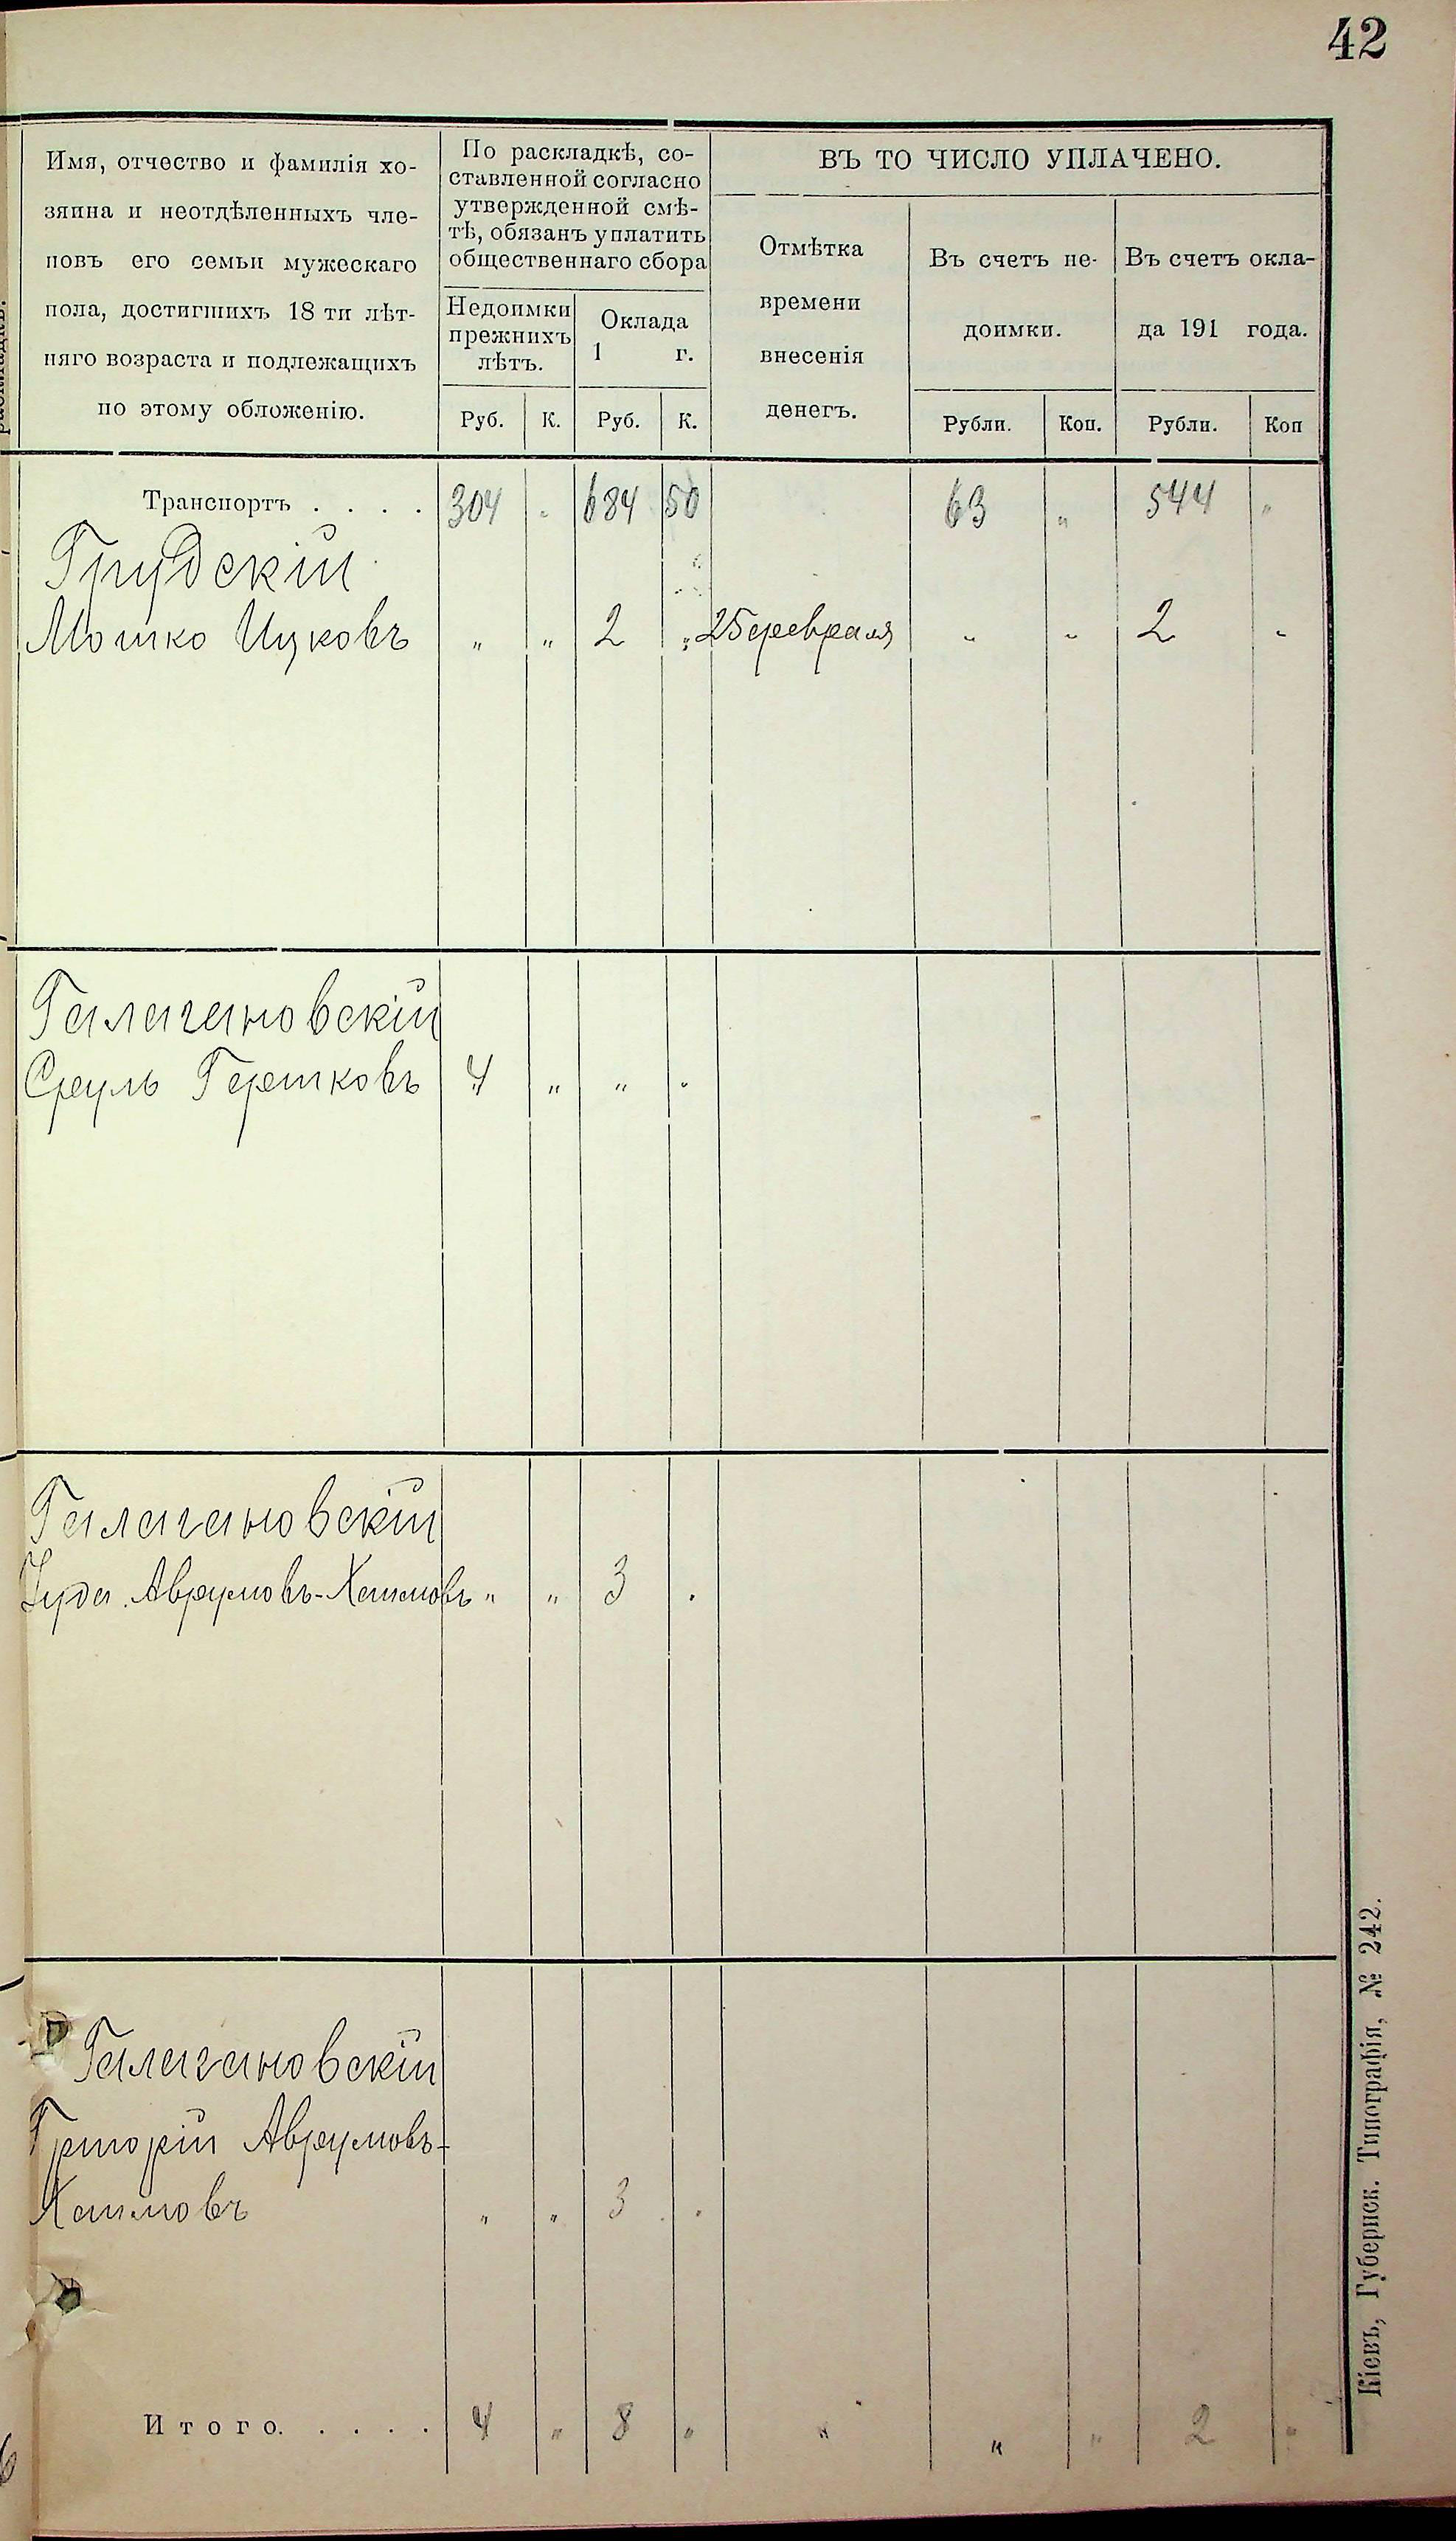 42
Имя, отчество и фамилія хо-
зяина и неотдѣленныхъ чле-
новъ его семьи мужескаго
пола, достигшихъ 18 ти лѣт-
няго возраста и подлежащихъ
по этому обложенію.
По раскладкѣ, со-
ставленной согласно
утвержденной смѣ-
тѣ, обязанъ уплатить
общественнаго сбора
Недоимки
прежнихъ
лѣтъ.
Оклада
1 г.
Руб. К. Руб. К.
ВЪ ТО ЧИСЛО УПЛАЧЕНО.
Отмѣтка
времени
внесенія
денегъ.
Въ счетъ не-
доимки.
Рубли. Коп.
Въ счетъ окла-
да 191 года.
Рубли. Коп
Транспортъ . . . . 304 „ 684 50 63 „ 544 „
Грудскій
Мошко Ицковъ „ „ 2 „ 25 февраля „ „ 2 „
Галагановскій
Сруль Гершковъ 4 „ „ „
Галагановскій
Іуда Аврумовъ-Хаимовъ „ „ 3 „
Галагановскій
Григорій Аврумовъ-
Хаимовъ „ „ 3 „
Итого. . . . . 4 „ 8 „ „ „ „ 2 „
Кіевъ, Губернск. Типографія, № 242.